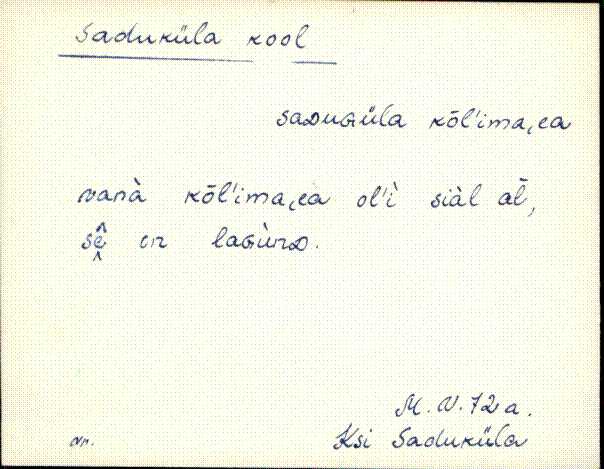 Saduküla kool
saᴅuɢüla kōl'ima͔ea
vanà kōl'ima͔ea ol'ì siàl āt̄,
sê on laɢùnᴅ.
M. V. 72 a.
vn. Ksi Saduküla